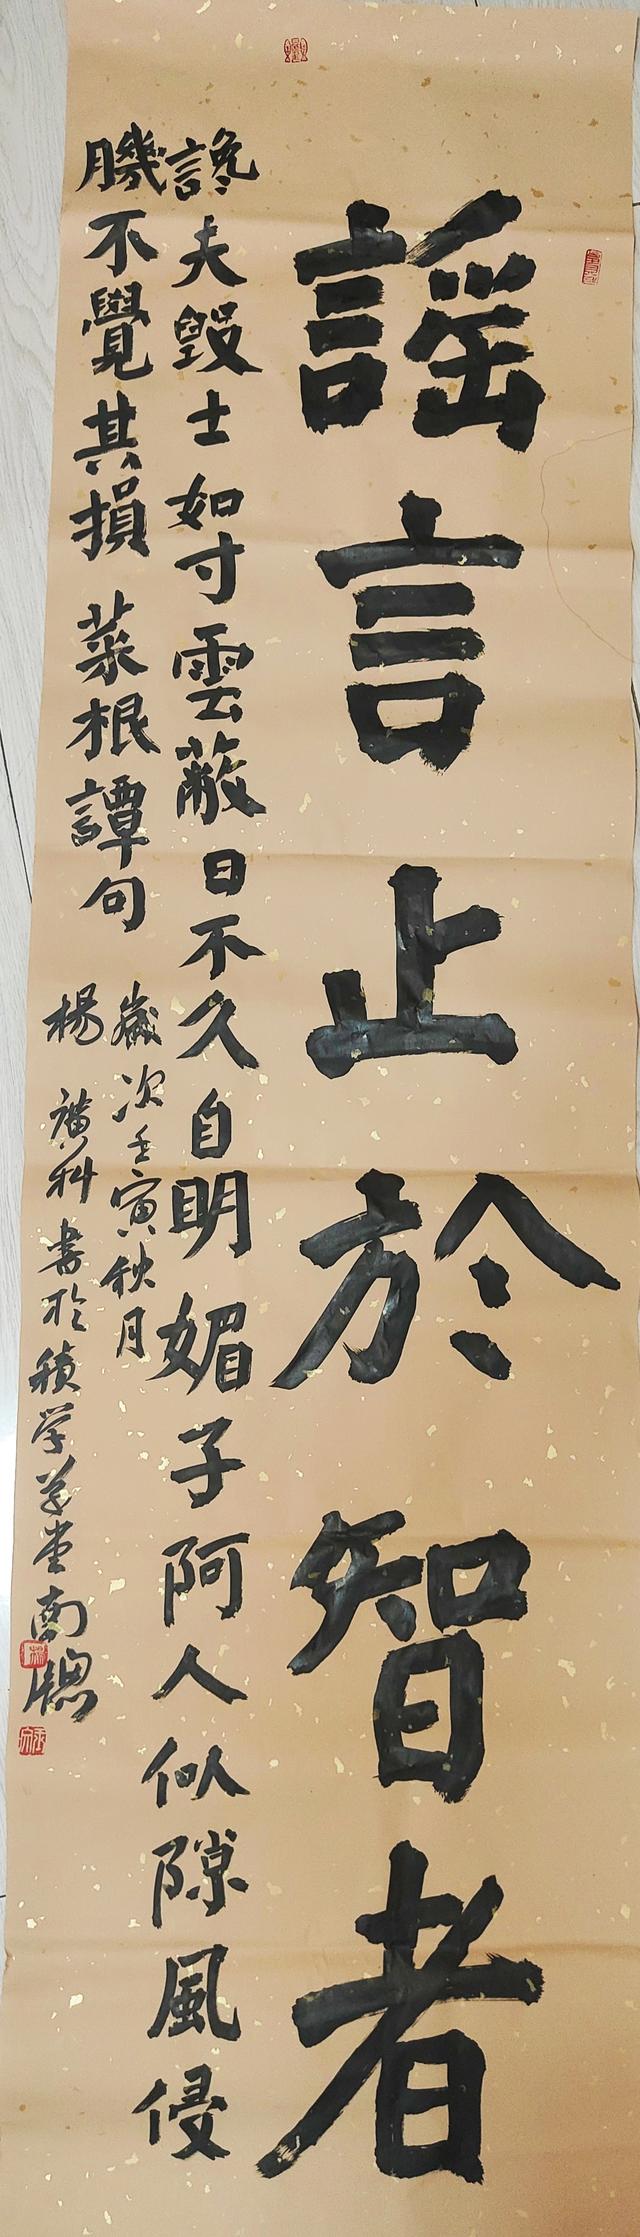 謠言止於智者
䜛夫毀士如寸雲蔽日不久自明媚子阿人似隙風侵
𦠄不覺其損 菜根譚句
歲次壬寅秋月
楊廣科書於積学草堂南牕